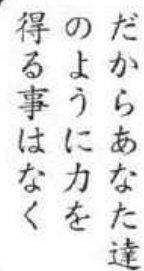 だからあなた達
のように力を
得る事はなく